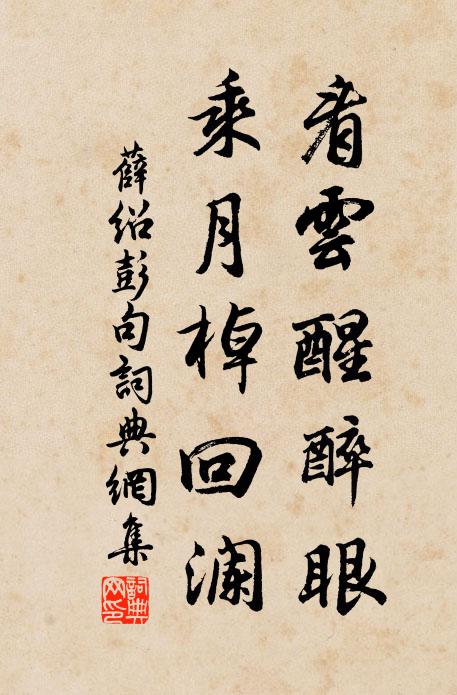 看雲醒醉眼
乘月棹回瀾
薛紹彭句詞典網集
詞典網印